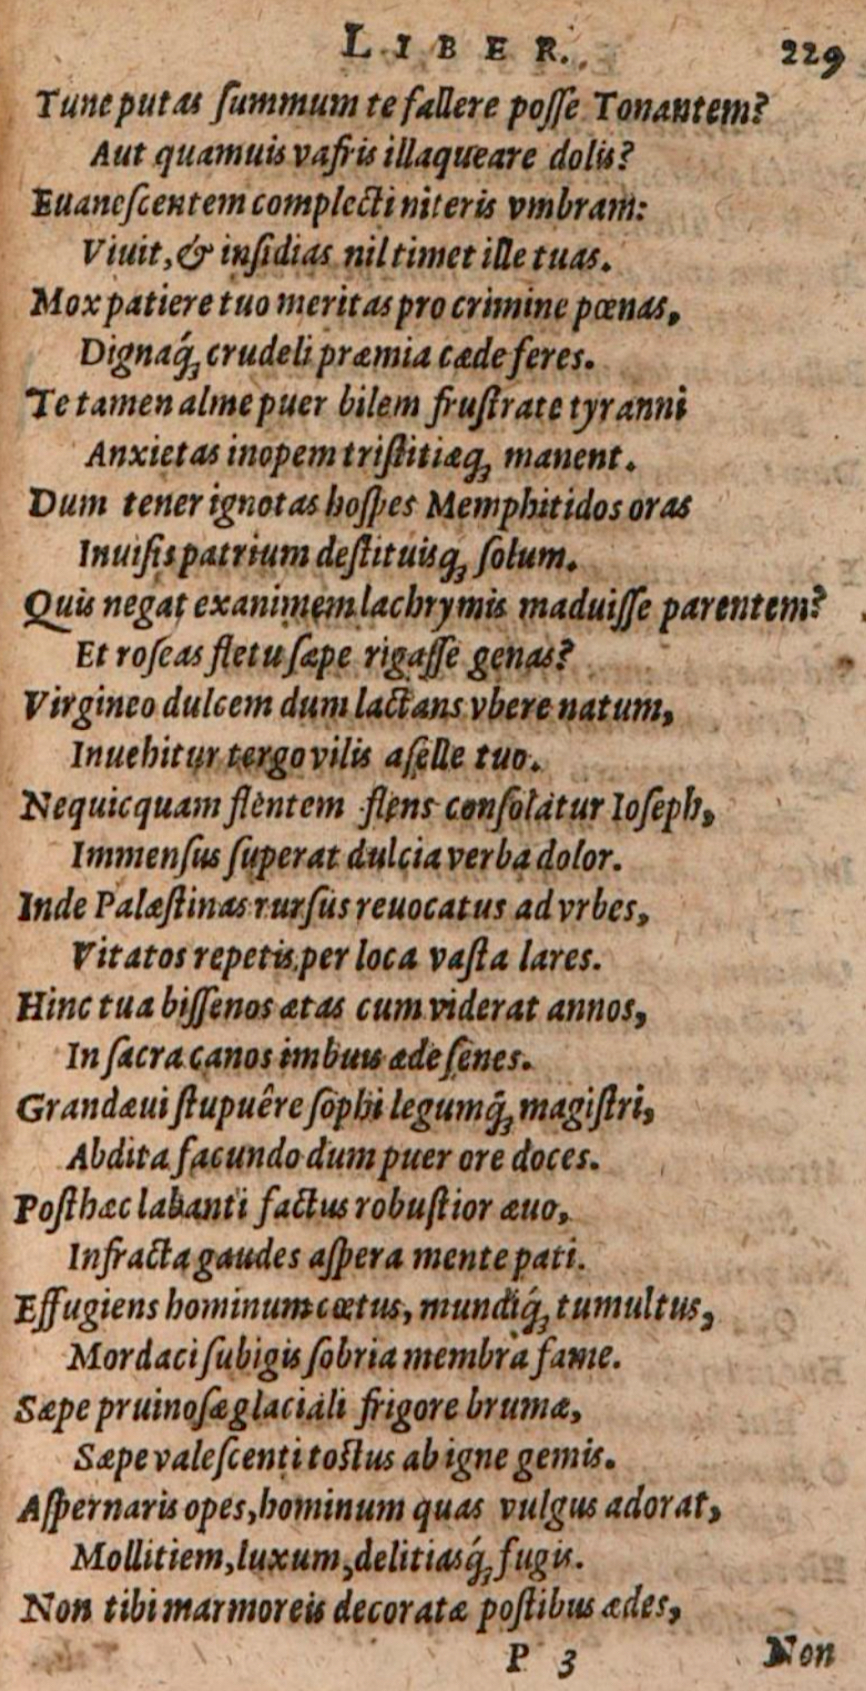 LIBER. 229
Tune putas ſummum te fallere poſſe Tonantem?
Aut quamuis vafris illaqueare dolis?
Euaneſcentem complecti niteris vmbram:
Viuit, & inſidias nil timet ille tuas.
Mox patiere tuo meritas pro crimine pœnas,
Dignaq́ꝫ crudeli præmia cæde feres.
Te tamen alme puer bilem fruſtrate tyranni
Anxietas inopem triſtitiæqꝫ manent.
Dum tener ignotas hoſpes Memphitidos oras
Inuiſis patrium deſtituisqꝫ ſolum.
Quis negat exanimem lachrymis maduiſſe parentem?
Et roſeas fletu ſæpe rigaſſe genas?
Virgineo dulcem dum lactans vbere natum,
Inuehitur tergo vilis aſelle tuo.
Nequicquam flentem flens conſolatur Ioſeph,
Immenſus ſuperat dulcia verba dolor.
Inde Palæſtinas rurſus reuocatus ad vrbes,
Vitatos repetis per loca vaſta lares.
Hinc tua biſſenos ætas cum viderat annos,
In ſacra canos imbuis æde ſenes.
Grandæui ſtupuêre ſophi legumq́ꝫ magiſtri,
Abdita facundo dum puer ore doces.
Poſt hæc labanti factus robuſtior æuo,
Infracta gaudes aſpera mente pati.
Effugiens hominum cœtus, mundiq́ꝫ tumultus,
Mordaci ſubigis ſobria membra fame.
Sæpe pruinoſæ glaciali frigore brumæ,
Sæpe valeſcenti toſtus ab igne gemis.
Aſpernaris opes, hominum quas vulgus adorat,
Mollitiem, luxum, delitiasq́ꝫ fugis.
Non tibi marmoreis decoratæ poſtibus ædes,
P 3 Non